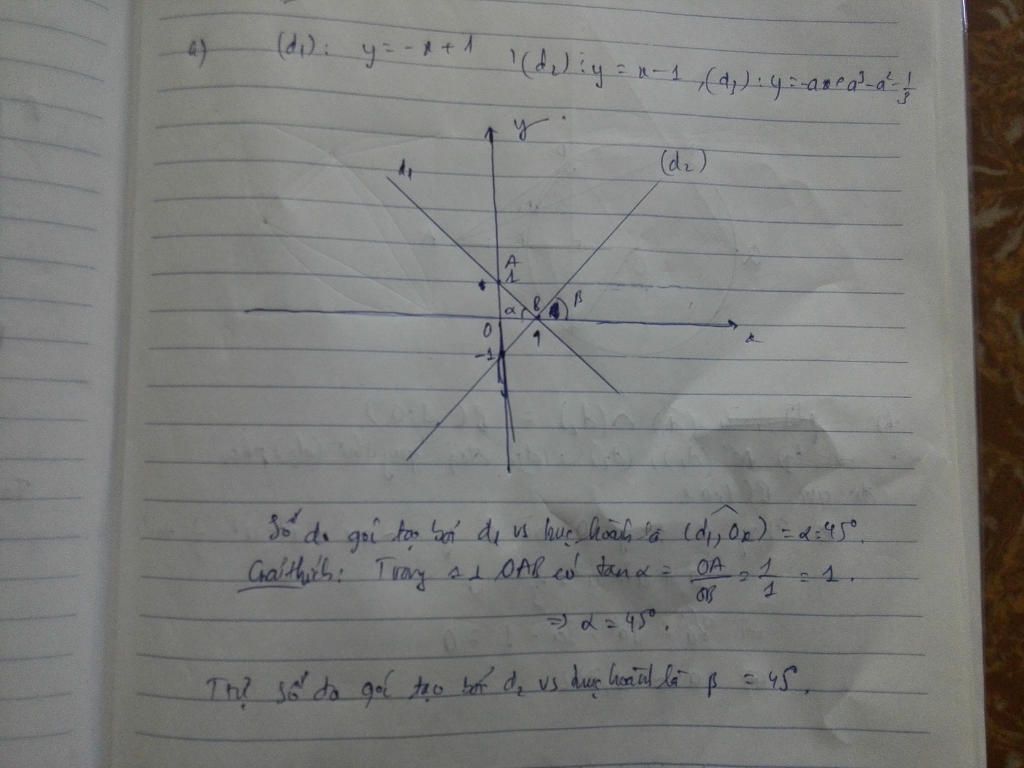 a) (d₁): y = -x + 1 , (d₂): y = x - 1 , (d₃): y = -ax + a³ - a² - 1/3
y
d₁
(d₂)
A
1
α B β
0 1 x
-1
Số đo góc tạo bởi d₁ vs trục hoành là (d₁, Ox) = α = 45°.
Giải thích: Trong Δ ⊥ OAB có tan α = OA/OB = 1/1 = 1.
⇒ α = 45°.
Số đo góc tạo bởi d₂ vs trục hoành là β = 45°.